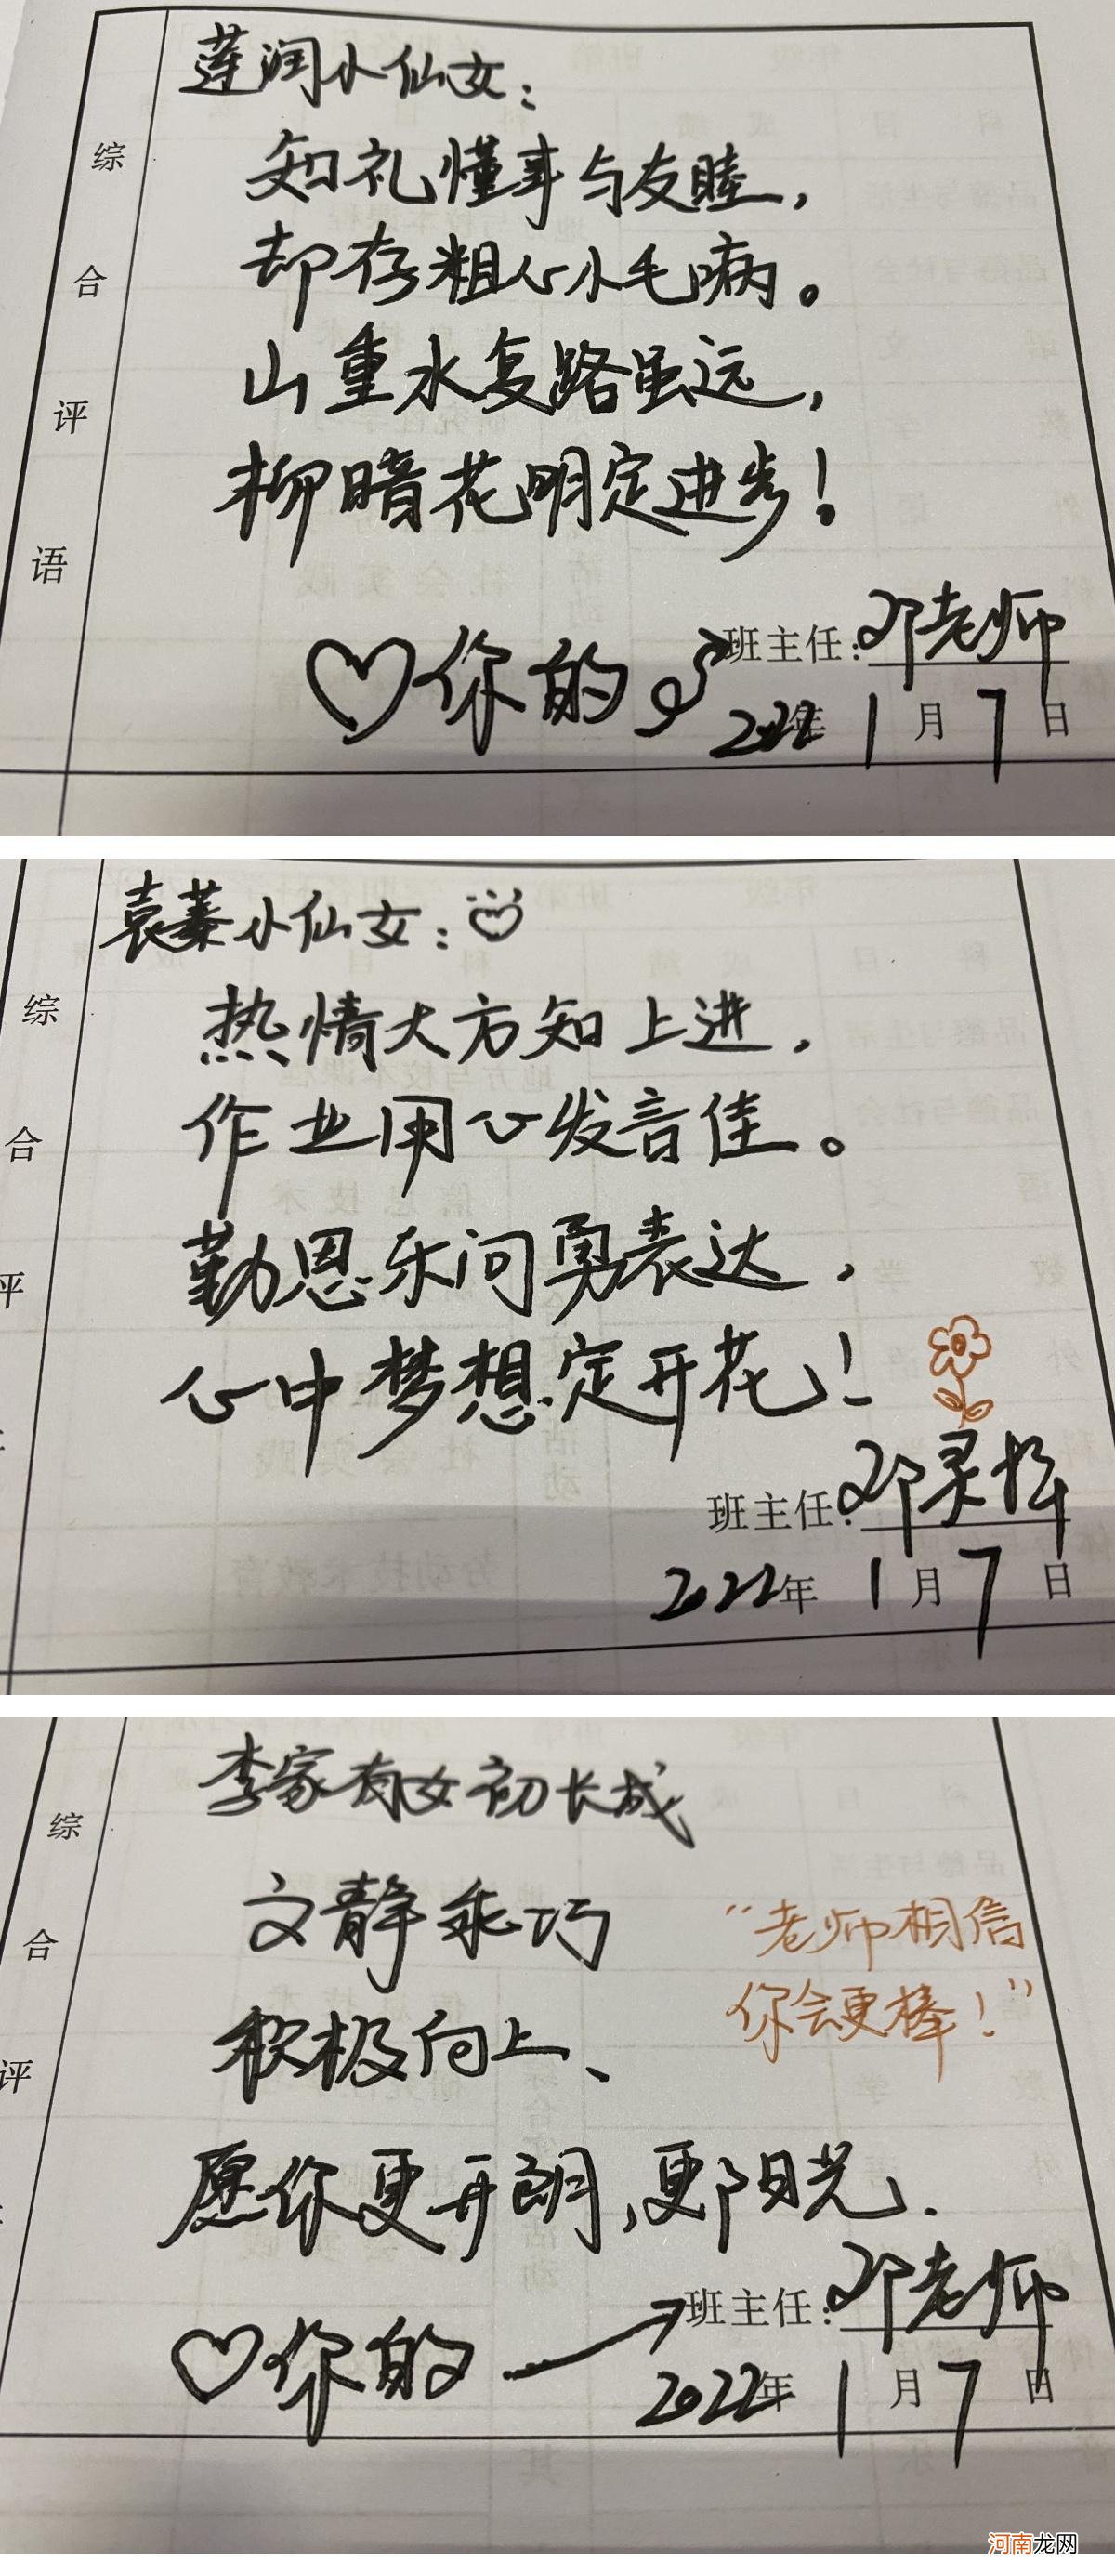 综合评语
莲润小仙女：
知礼懂事与友睦，
却存粗心小毛病。
山重水复路虽远，
柳暗花明定进步！
♡你的
班主任：邓老师
2022年1月7日
综合评
袁蓁小仙女：
热情大方知上进，
作业用心发音佳。
勤恩乐问勇表达，
心中梦想定开花！
班主任：邓灵
2022年1月7日
综合评
李家有女初长成
文静乖巧
积极向上、
愿你更开朗，更阳光.
“老师相信
你会更棒！”
♡你的
班主任：邓老师
2022年1月7日
河南龙网